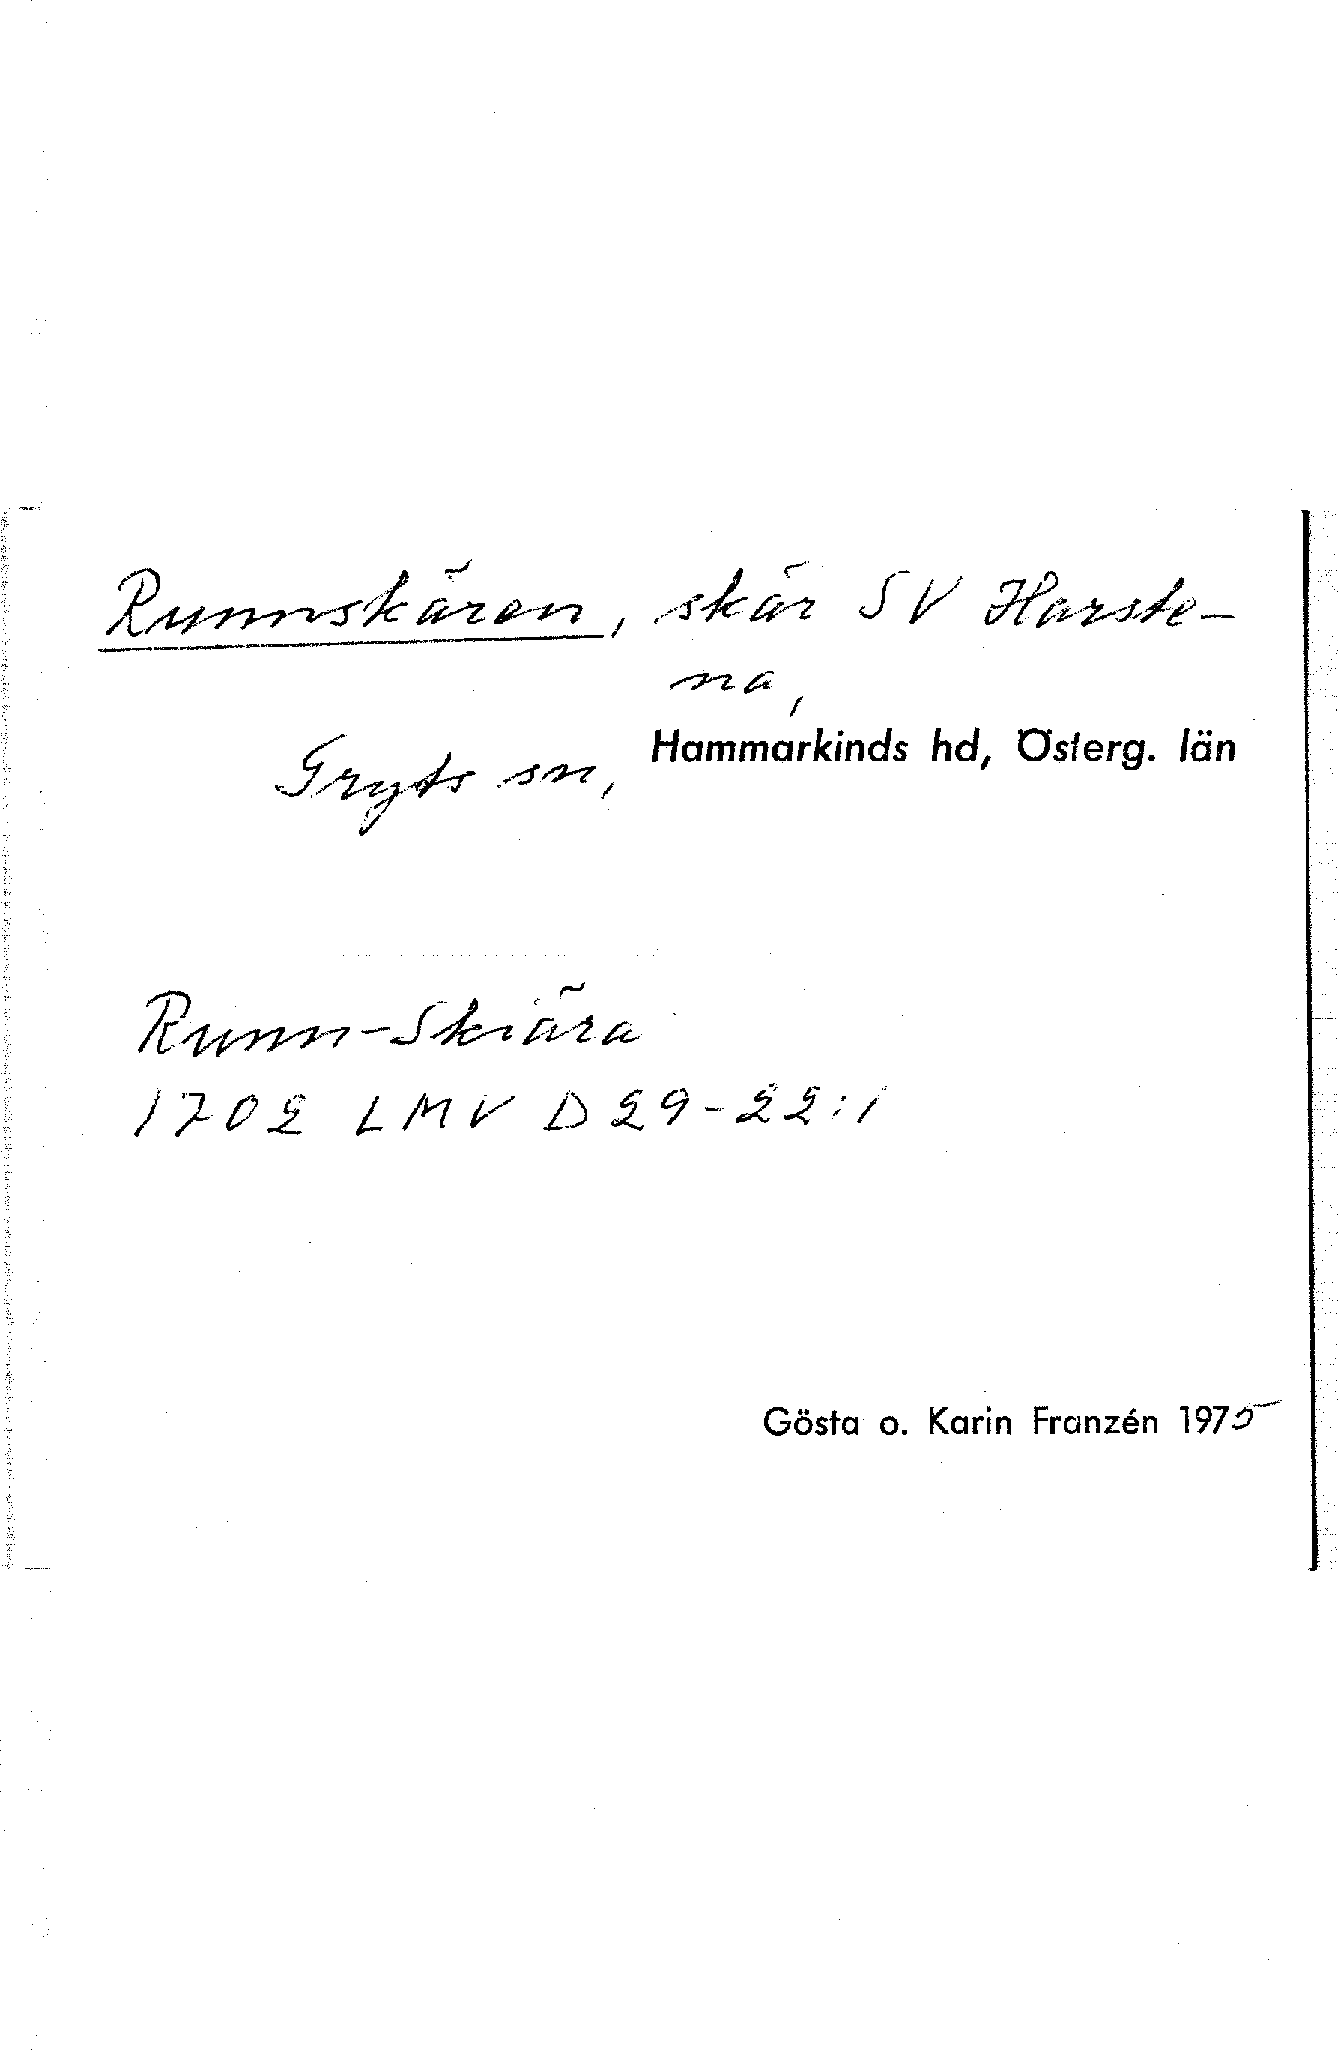 Runnskären, skär SV Harste-
na,
Gryts sn, Hammarkinds hd, Österg. län
Runn-Skiära
1702 LMV D29-22:1
Gösta o. Karin Franzén 1975